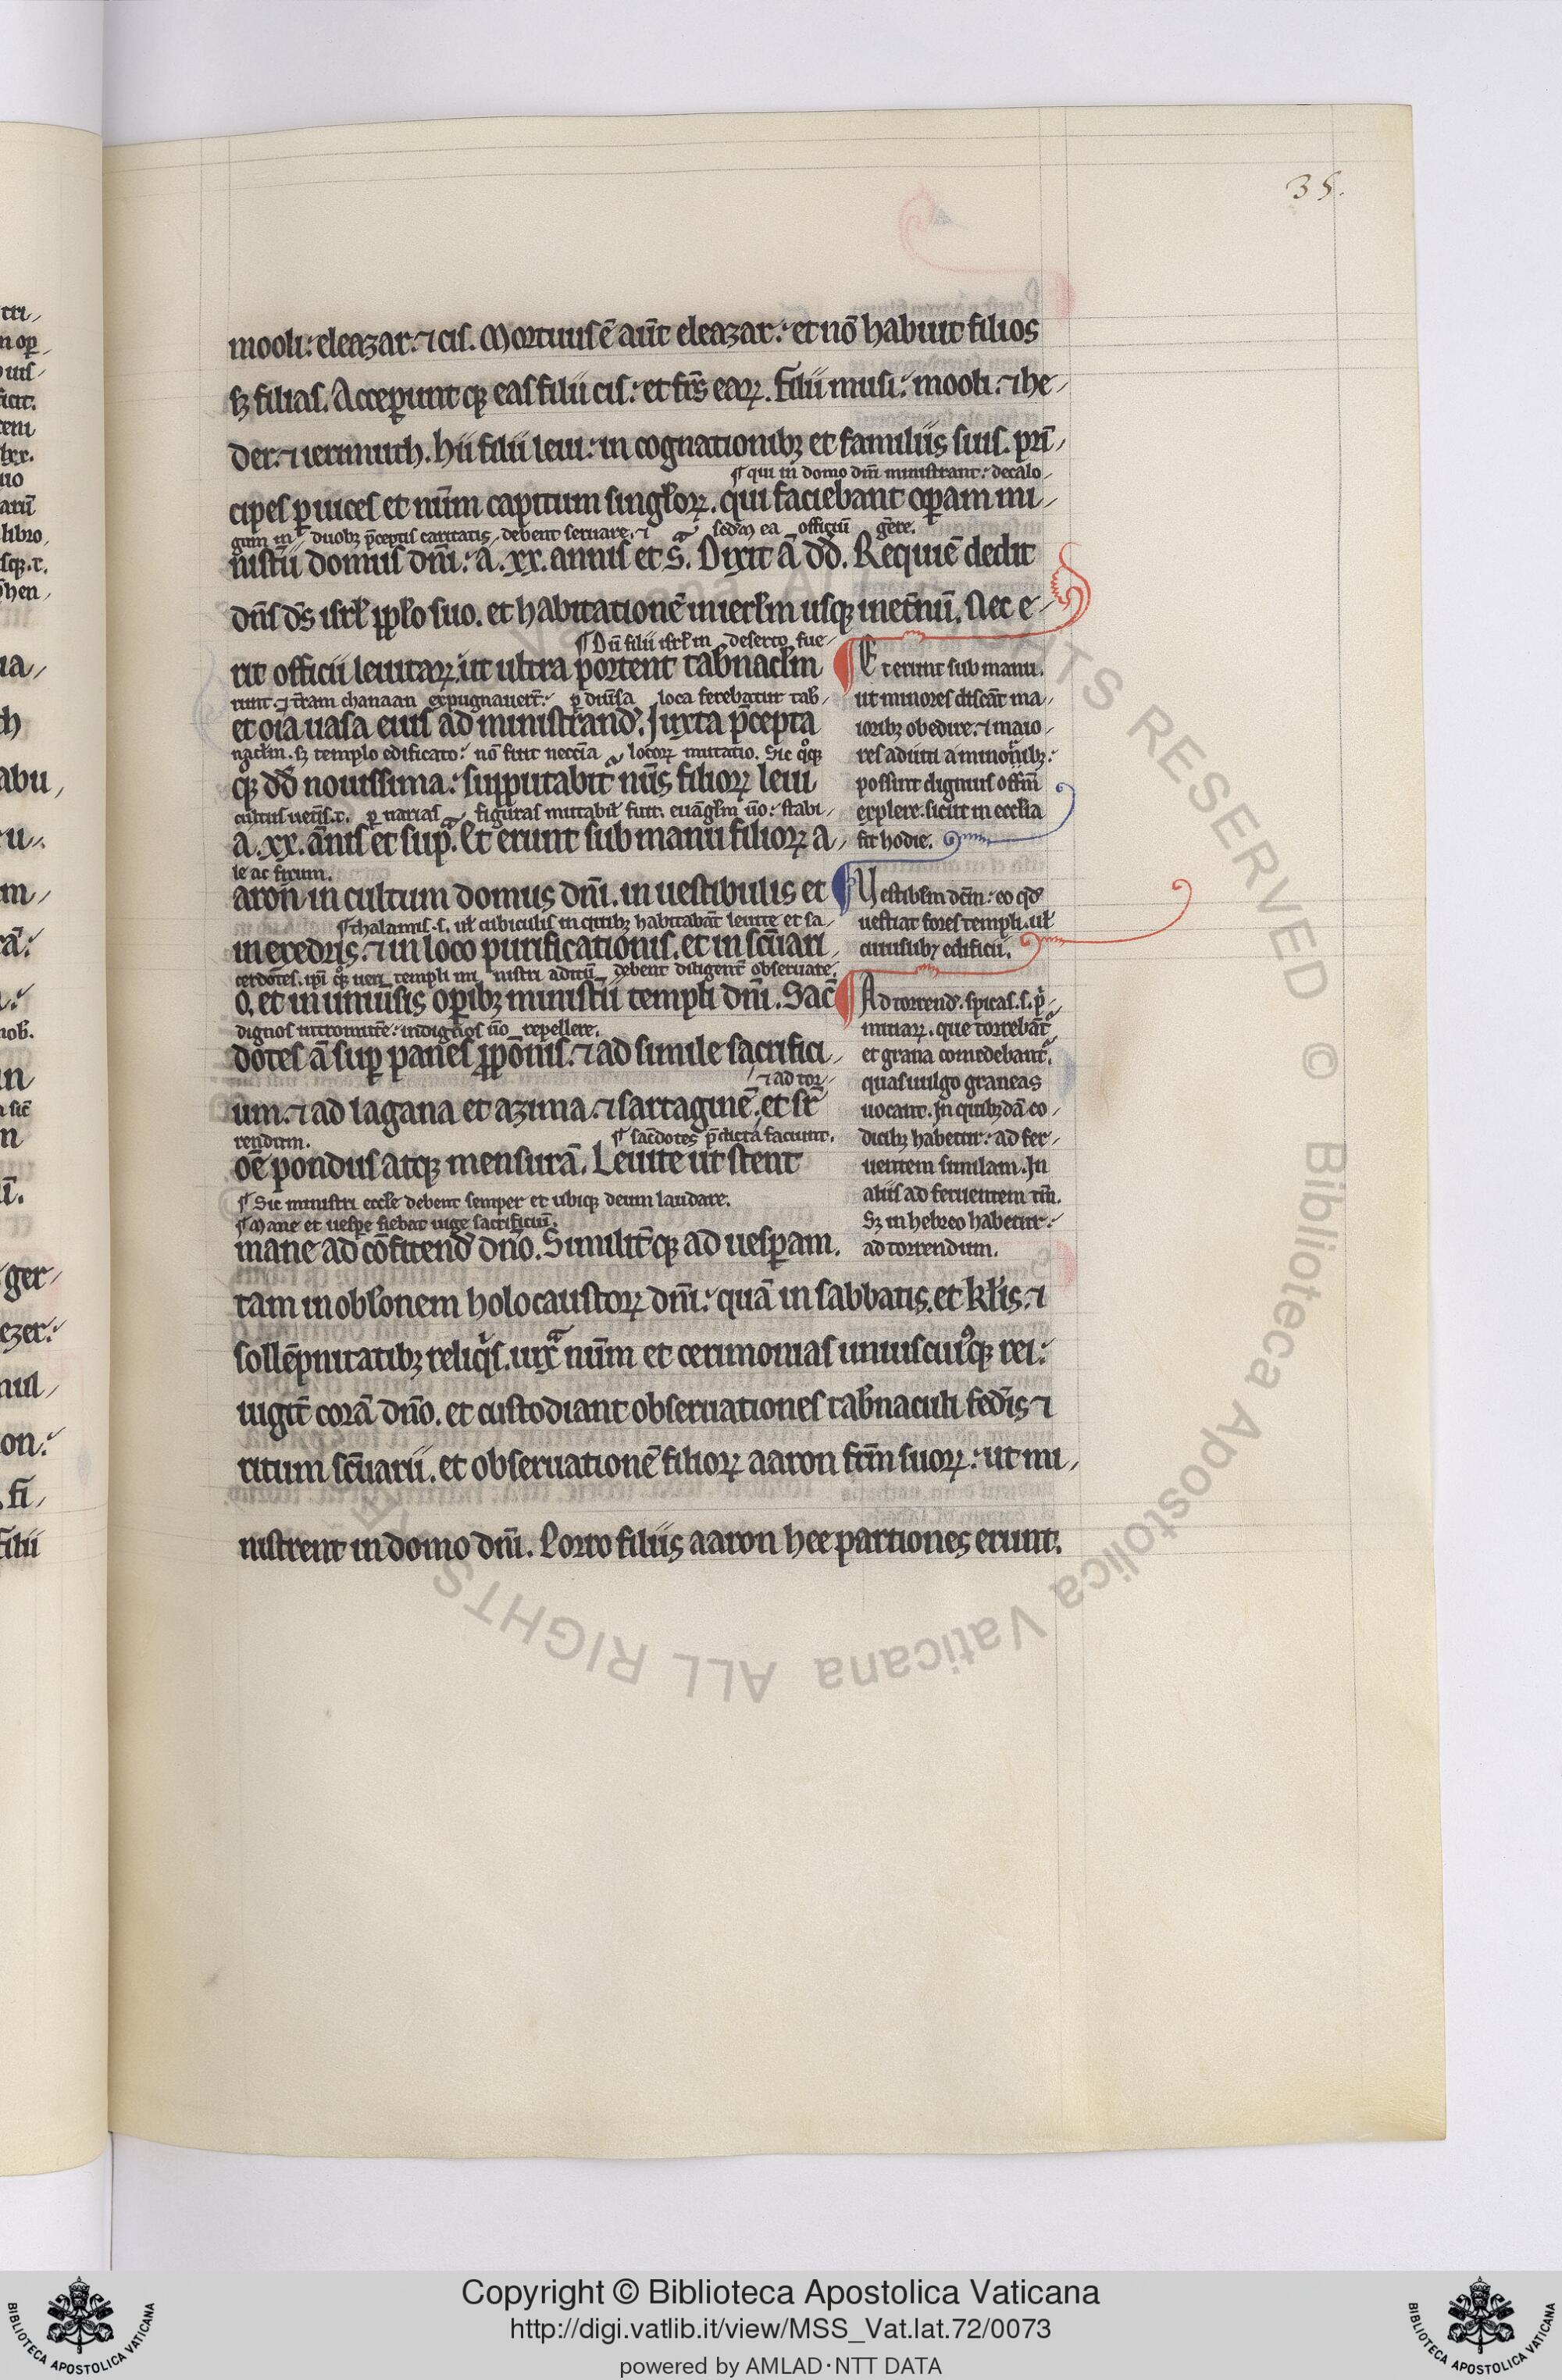 35.
mooli: eleazar: ⁊ cis. Mortuus ē aūt eleazar: et nō habuit filios
sꝫ filias. Acceperunt qꝫ eas filii cis: et fr̄s eaꝝ. Filii musi: mooli: ⁊ he-
der: ⁊ ierimuth. hii filii leui: in cognationibꝫ et familiis suis. prī-
¶ qui in domo dn̄i ministrant: decalo-
cipes ꝑ uices et nūm capitum singloꝝ. qui faciebant oꝑam mi-
gum in duobꝫ p̄ceptis caritatis debent seruare. ⁊ sed'm ea officiū gēre.
nistii domus dn̄i: a .xx. annis et s̄. Dixit ā dd̄. Requiē dedit
dn̄s ds̄ isrl̄ pplo suo. et habitationē in ierl̄m usqꝫ in et̄nū. Nec e-
¶ Dū filii isrl̄ in deserto fue-
rit officii leuitaꝝ: ut ultra portent tab̄nacl̄m
runt ⁊ t̄ram chanaan expugnauer̄t: ꝑ diūsa loca ferebatur tab̄-
et oīa uasa eius ad ministrand'. Juxta p̄cepta
nacl̄m. sꝫ templo edificato: nō fuit neccīa locoꝝ mutatio. Sic qͦqꝫ
qꝫ dd̄ nouissima: supputabit nūs filioꝝ leui
cultus uet̄is .t. ꝑ uarias figuras mutabil' fuit. euāgl̄m ūo: stabi-
a .xx. annis et sup̄. Et erunt sub manu filioꝝ a-
le ac firum.
aron in cultum domus dn̄i. in uestibulis et
¶ thalamis .s. ul' cubiculis in quibꝫ habitabāt leuite et sa-
in exedris: ⁊ in loco purificationis. et in sc̄uari-
cerdotes. ip̄i qͦqꝫ ueri templi ministri aditū debent diligent̄ obseruare.
o. et in uniūsis oꝑibꝫ ministii templi dn̄i. Sac̄-
dignos intromitt̄e: indignos ūo repellere.
dotes ā suꝑ panes ꝓpōnis: ⁊ ad simile sacrifici-
⁊ ad tor-
um. ⁊ ad lagana et azima. ⁊ sartaginē. et sr̄
rendum. ¶ sac̄dotes p̄dicta faciunt.
oē pondus atqꝫ mensurā. Leuite ut stent
¶ Sic ministri eccl̄e debent semper et ubiqꝫ deum laudare.
¶ Mane et uesꝑe fiebat iuge sacrificiū.
mane ad cōfitend' dn̄o. Similit̄qꝫ ad uesꝑam.
tam in obl̄onem holocaustoꝝ dn̄i: quā in sabbatis. et kl̄is. ⁊
sollēpnitatibꝫ reliqͥs. iuxͣ nūm et cerimonias uniuscuiꝰqꝫ rei:
iugit̄ corā dn̄o. et custodiant obseruationes tab̄naculi fed̄is ⁊
ritum sc̄uarii. et obseruationē filioꝝ aaron fr̄m suoꝝ: ut mi-
nistrent in domo dn̄i. Porro filiis aaron hee partiones erunt.
¶ Et erunt sub manu.
ut minores discāt ma-
ioribꝫ obedire. ⁊ maio-
res adiuti a minoribꝫ:
possint dignius offm̄
explere. sicut in eccl̄ia
fit hodie.
¶ Uestibl̄m dc̄m: eo qd'
uestiat fores templi. ul'
cuiuslibꝫ edificii.
¶ Ad torrend'. spicas .s. pͥ-
mitiaꝝ. que torrebāt̄
et grana comedebant.
quas uulgo graneas
uocant. In quibꝫdā co-
dicibꝫ habetur: ad fer-
uentem similam. In
aliis ad feruentem tm̄.
Sꝫ in hebreo habetur:
ad torrendum.
Copyright © Biblioteca Apostolica Vaticana
http://digi.vatlib.it/view/MSS_Vat.lat.72/0073
powered by AMLAD·NTT DATA
BIBLIOTECA APOSTOLICA VATICANA
BIBLIOTECA APOSTOLICA VATICANA